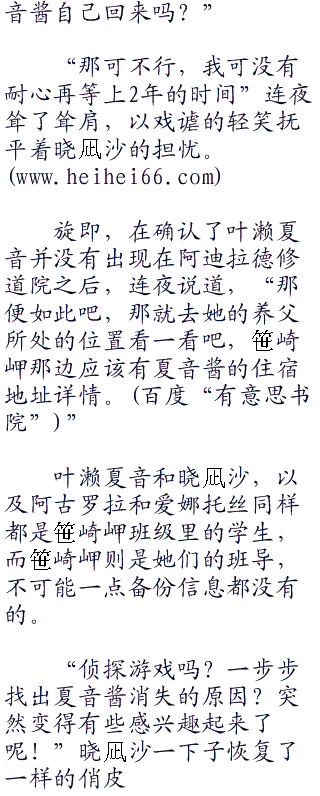 音酱自己回来吗？”
“那可不行，我可没有
耐心再等上2年的时间” 连夜
耸了耸肩，以戏谑的轻笑抚
平着晓凪沙的担忧。
(www.heihei66.com)
旋即，在确认了叶濑夏
音并没有出现在阿迪拉德修
道院之后，连夜说道，“那
便如此吧，那就去她的养父
所处的位置看一看吧，笹崎
岬那边应该有夏音酱的住宿
地址详情。(百度“有意思书
院”)”
叶濑夏音和晓凪沙，以
及阿古罗拉和爱娜托丝同样
都是笹崎岬班级里的学生，
而笹崎岬则是她们的班导，
不可能一点备份信息都没有
的。
“侦探游戏吗？一步步
找出夏音酱消失的原因？突
然变得有些感兴趣起来了
呢！”晓凪沙一下子恢复了
一样的俏皮